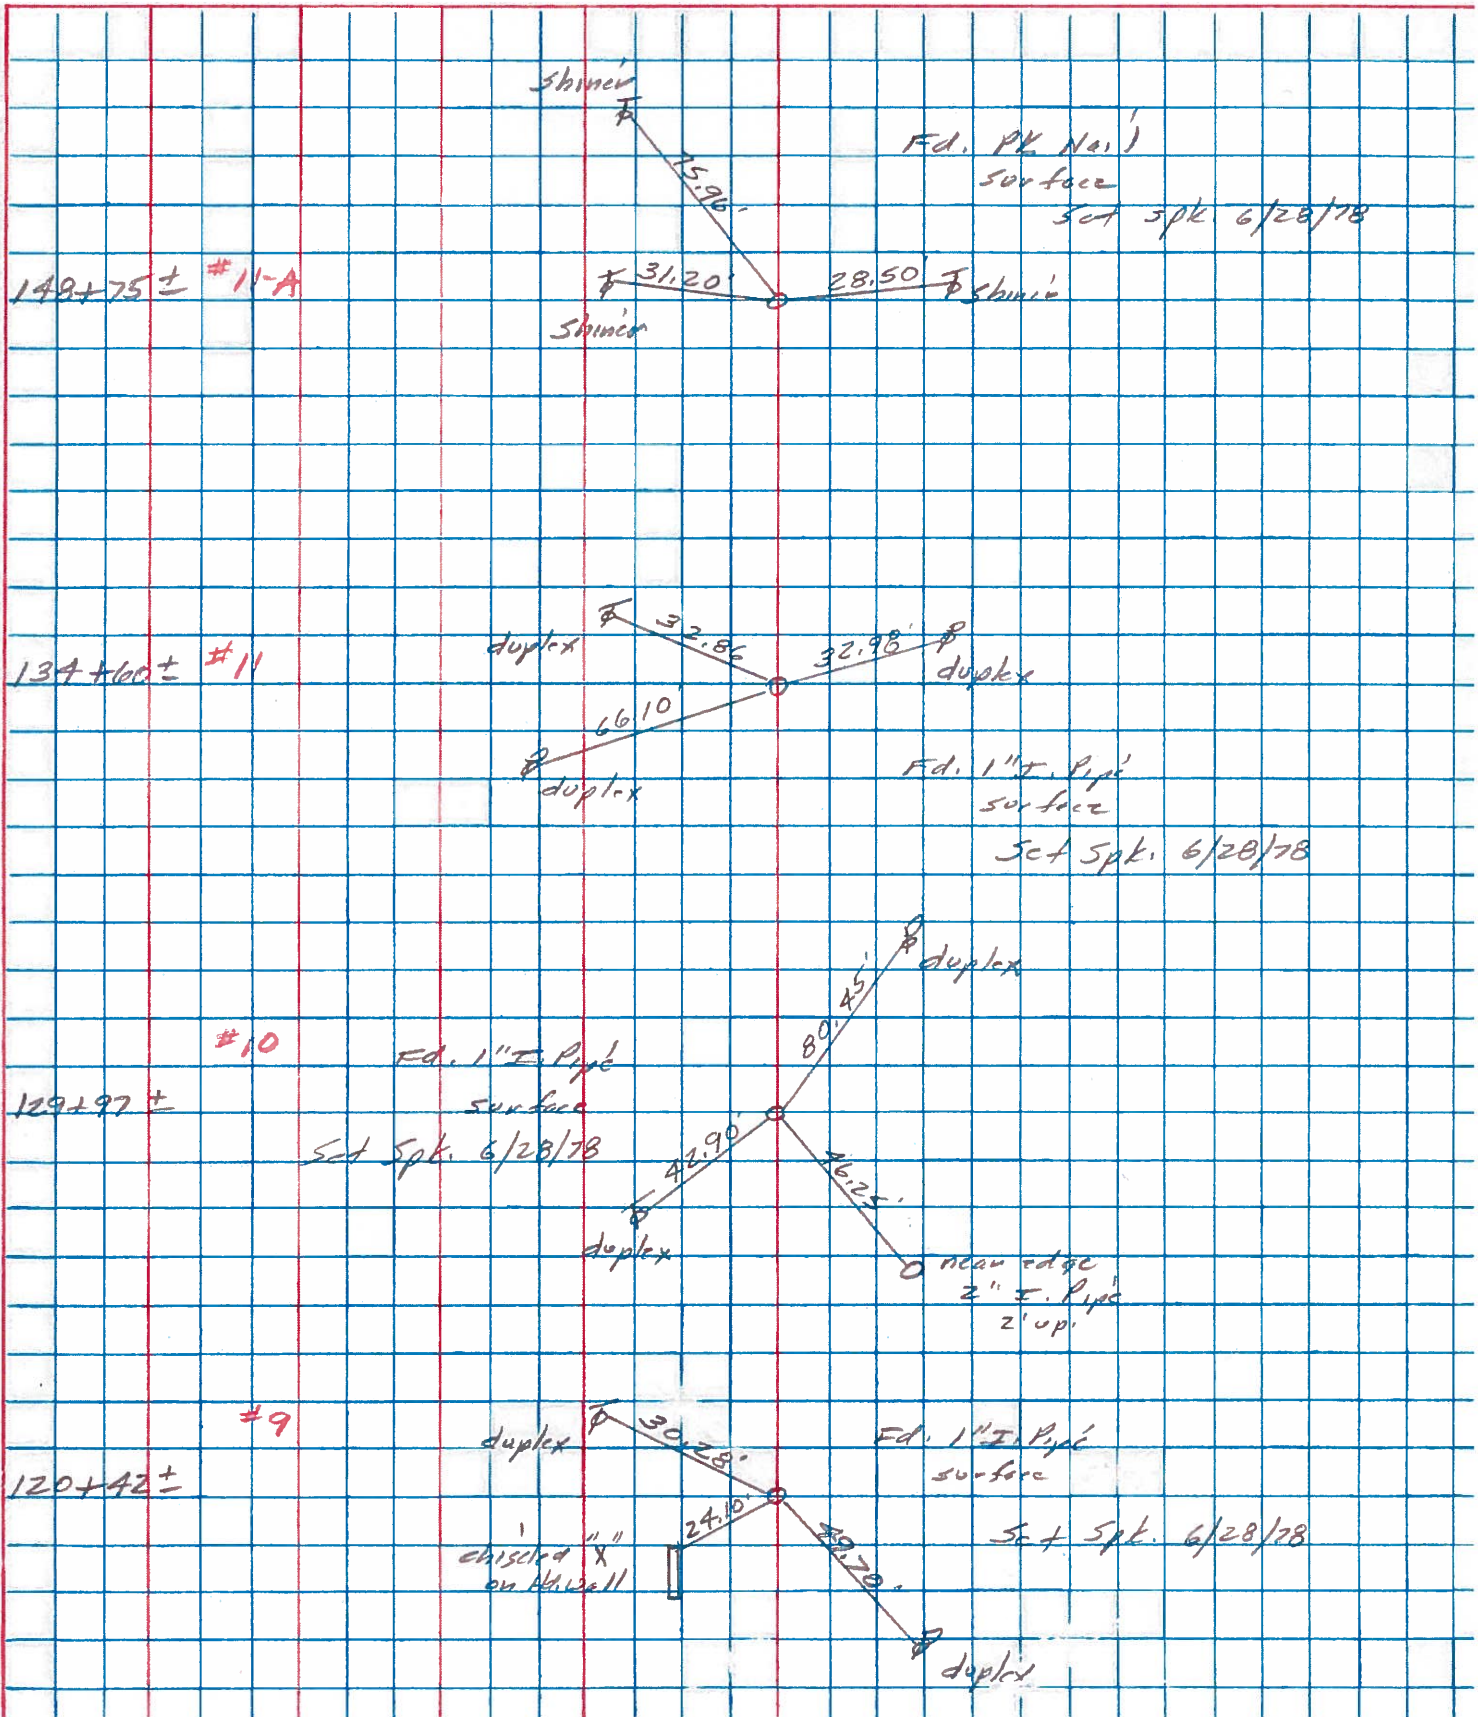 shiner
75.96'
Fd. PK Nail
surface
Set spk. 6/28/78
148+75± #11-A
31.20'
28.50'
shiner
shiner
duplex
32.86
32.98'
duplex
134+60± #11
66.10'
duplex
Fd. 1" I. Pipe
surface
Set Spk. 6/28/78
duplex
80.45'
#10
Fd. 1" I. Pipe
129+97±
surface
Set Spk. 6/28/78
42.90'
duplex
near edge
2" I. Pipe
2' up.
#9
duplex
30.28'
Fd. 1" I. Pipe
surface
120+42±
24.10'
Set Spk. 6/28/78
chiseled "X"
on Hd.wall
duplex